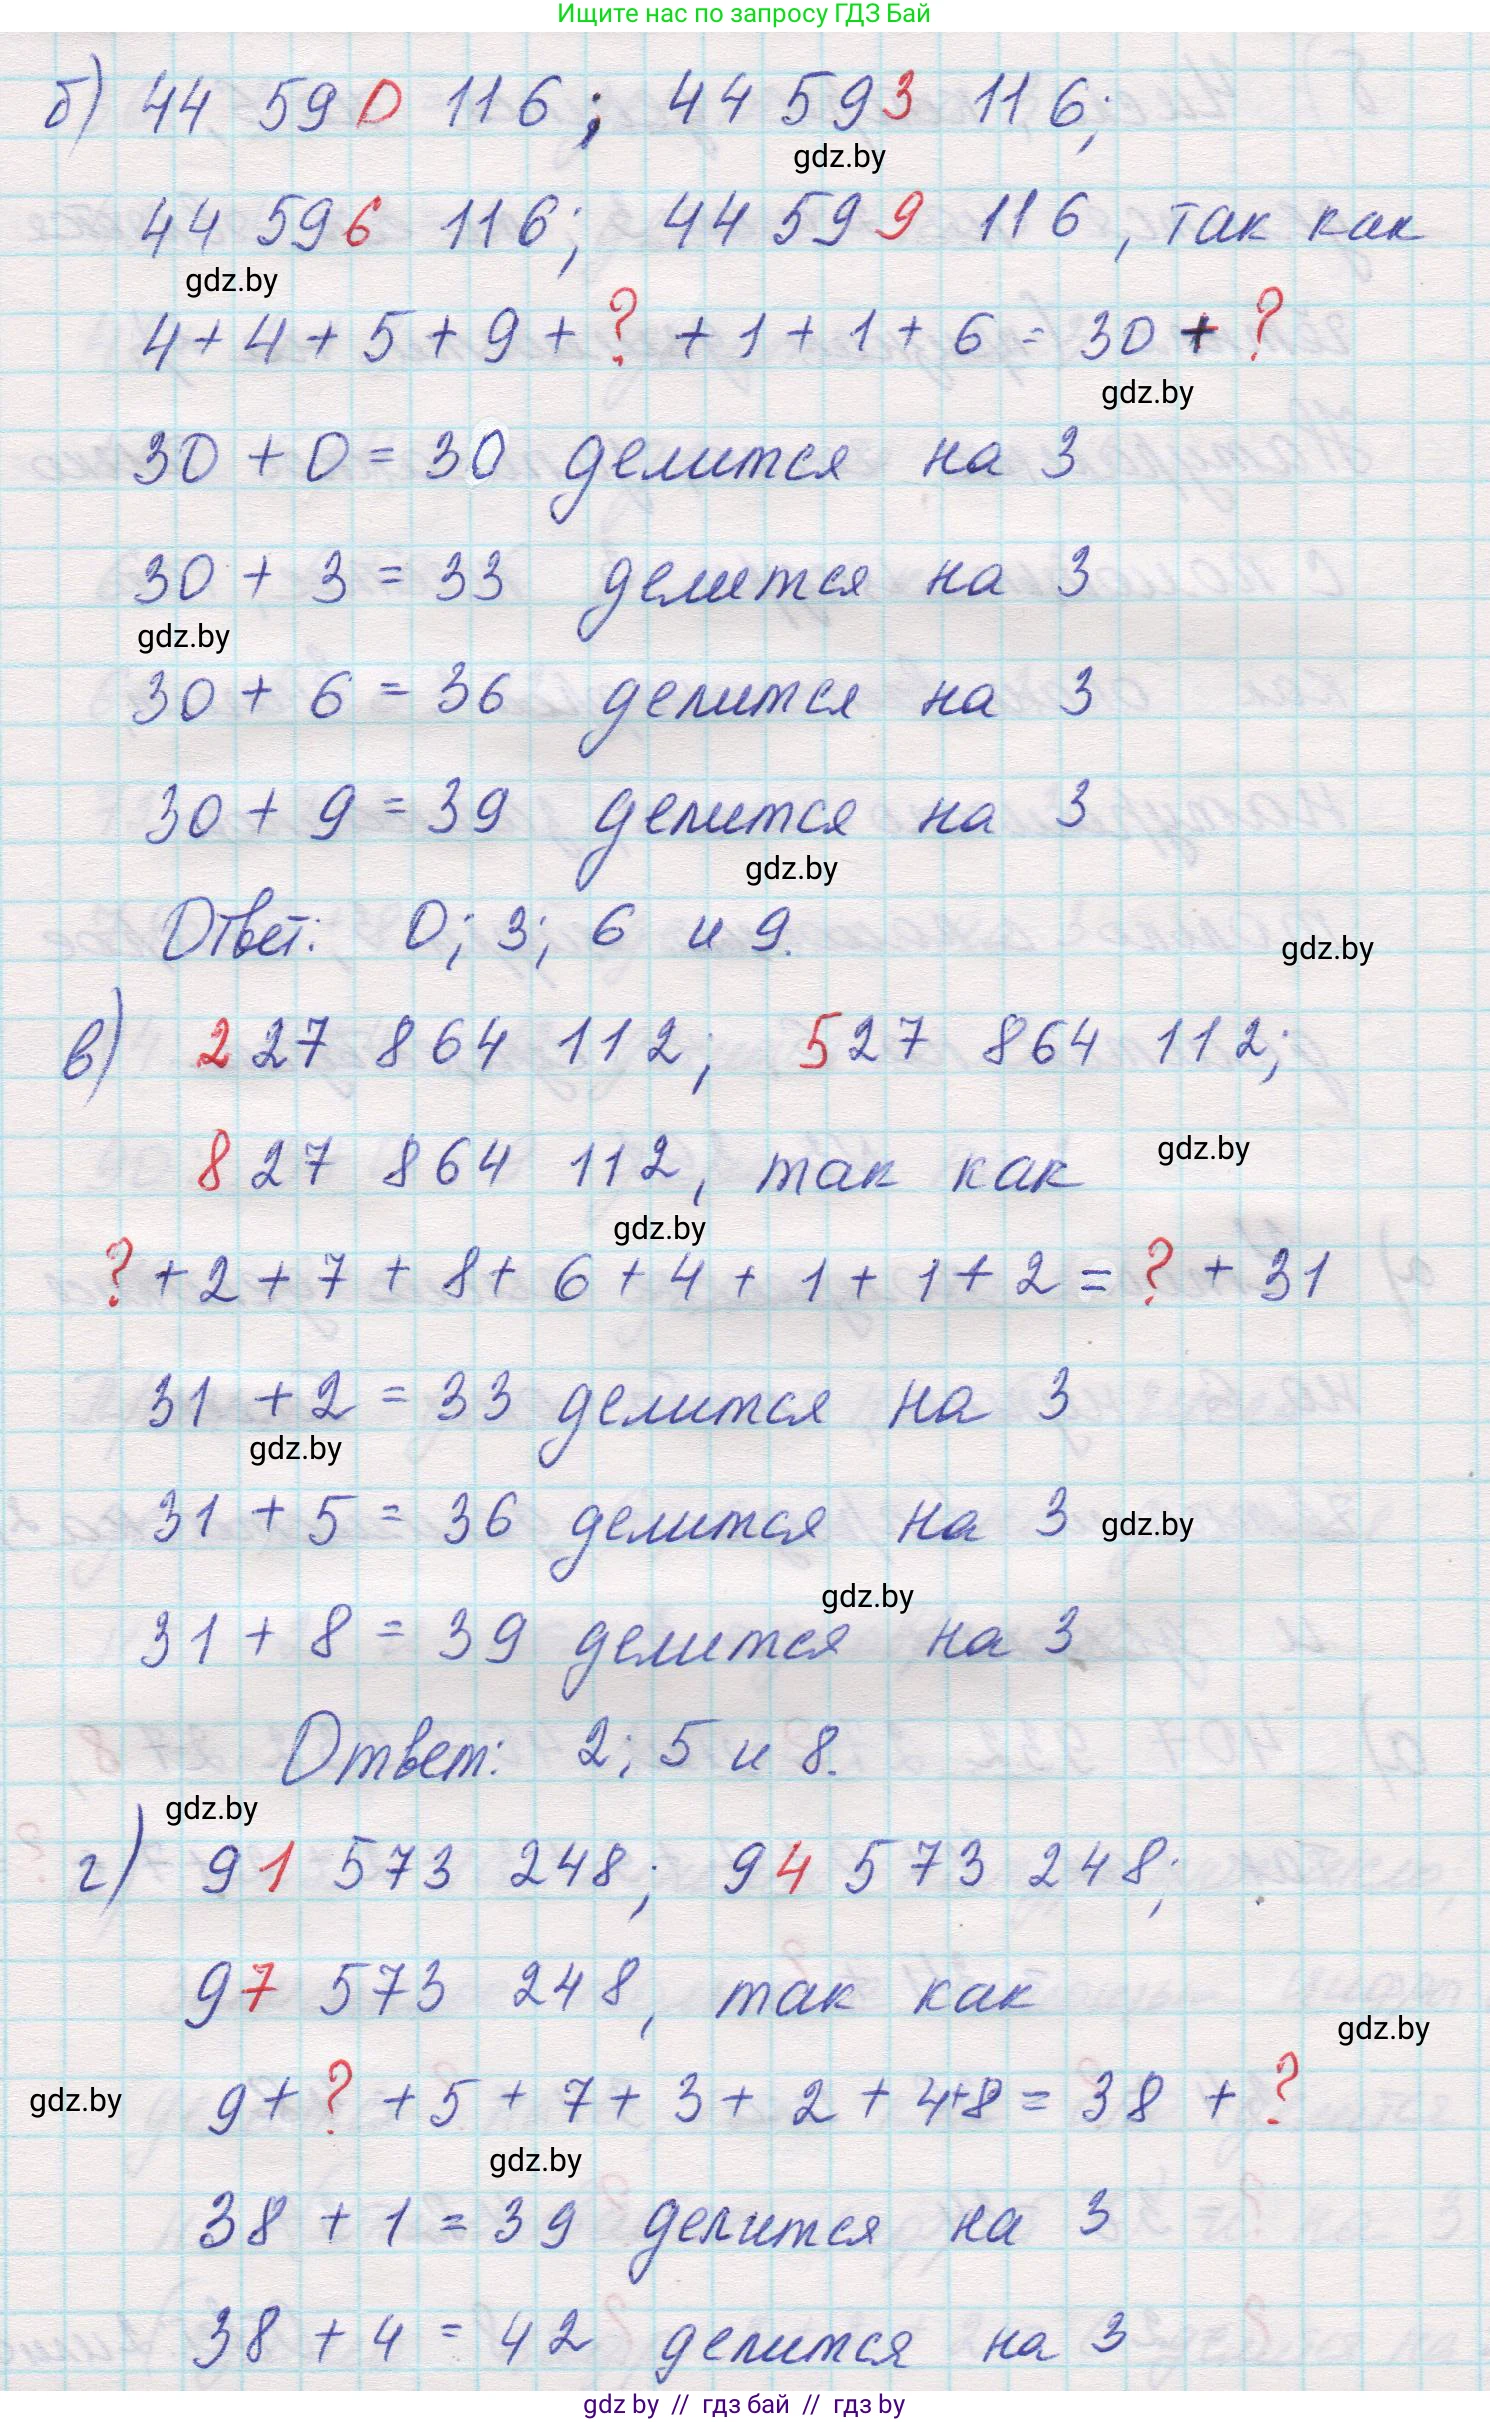 Ищите нас по запросу ГДЗ Бай
б) 44 590 116; 44 593 116;
gdz.by
44 596 116; 44 599 116, так как
gdz.by
4+4+5+9+?+1+1+6=30+?
gdz.by
30+0=30 делится на 3
30+3=33 делится на 3
gdz.by
30+6=36 делится на 3
30+9=39 делится на 3
gdz.by
Ответ: 0; 3; 6 и 9.
gdz.by
в) 227 864 112; 527 864 112;
827 864 112, так как
gdz.by
gdz.by
?+2+7+8+6+4+1+1+2=?+31
31+2=33 делится на 3
gdz.by
31+5=36 делится на 3
gdz.by
gdz.by
31+8=39 делится на 3
Ответ: 2; 5 и 8.
gdz.by
г) 91 573 248; 94 573 248;
97 573 248, так как
gdz.by
9+?+5+7+3+2+4+8=38+?
gdz.by
gdz.by
38+1=39 делится на 3
38+4=42 делится на 3
gdz by // гдз бай // гдз by